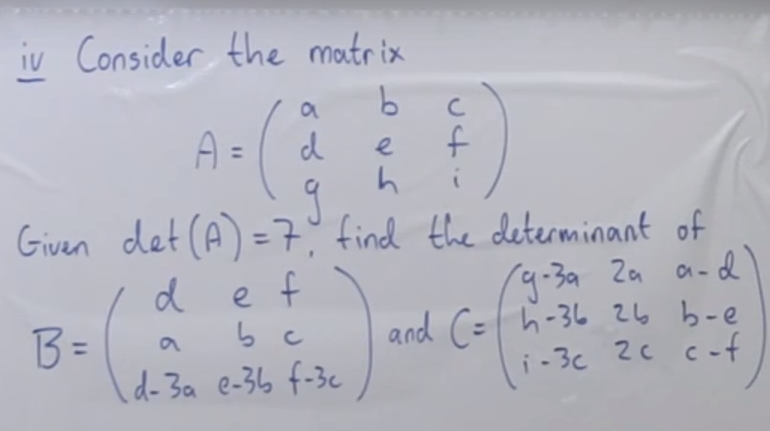 iv Consider the matrix
A = ( a b c
d e f
g h i )
Given det(A) = 7, find the determinant of
B = ( d e f
a b c
d-3a e-3b f-3c ) and C = ( g-3a 2a a-d
h-3b 2b b-e
i-3c 2c c-f )